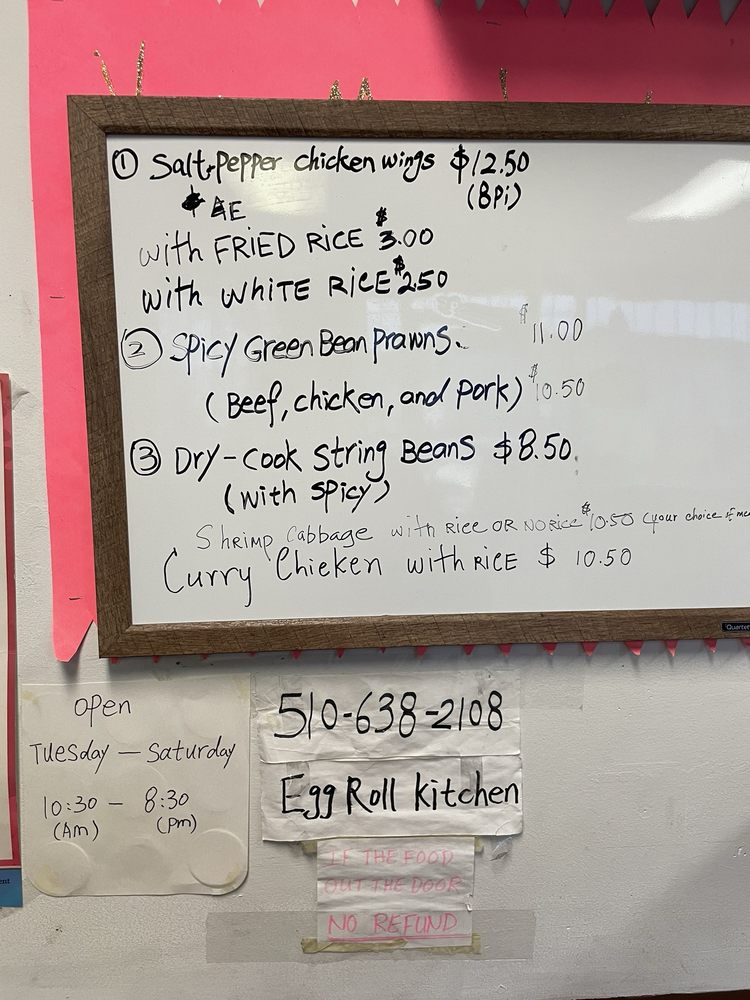 ① Salt+Pepper chicken wings $12.50
(8Pi)
with FRIED RICE $3.00
with WHITE RICE $2.50
② Spicy Green Bean Prawns. $11.00
(Beef, chicken, and Pork) $10.50
③ Dry-Cook String Beans $8.50.
(with spicy)
Shrimp Cabbage with Rice OR NO Rice $10.50 (your choice of
Curry Chicken with RICE $ 10.50
Quartet
open
Tuesday — Saturday
10:30 - 8:30
(Am) (pm)
510-638-2108
Egg Roll kitchen
IF THE FOOD
OUT THE DOOR
NO REFUND